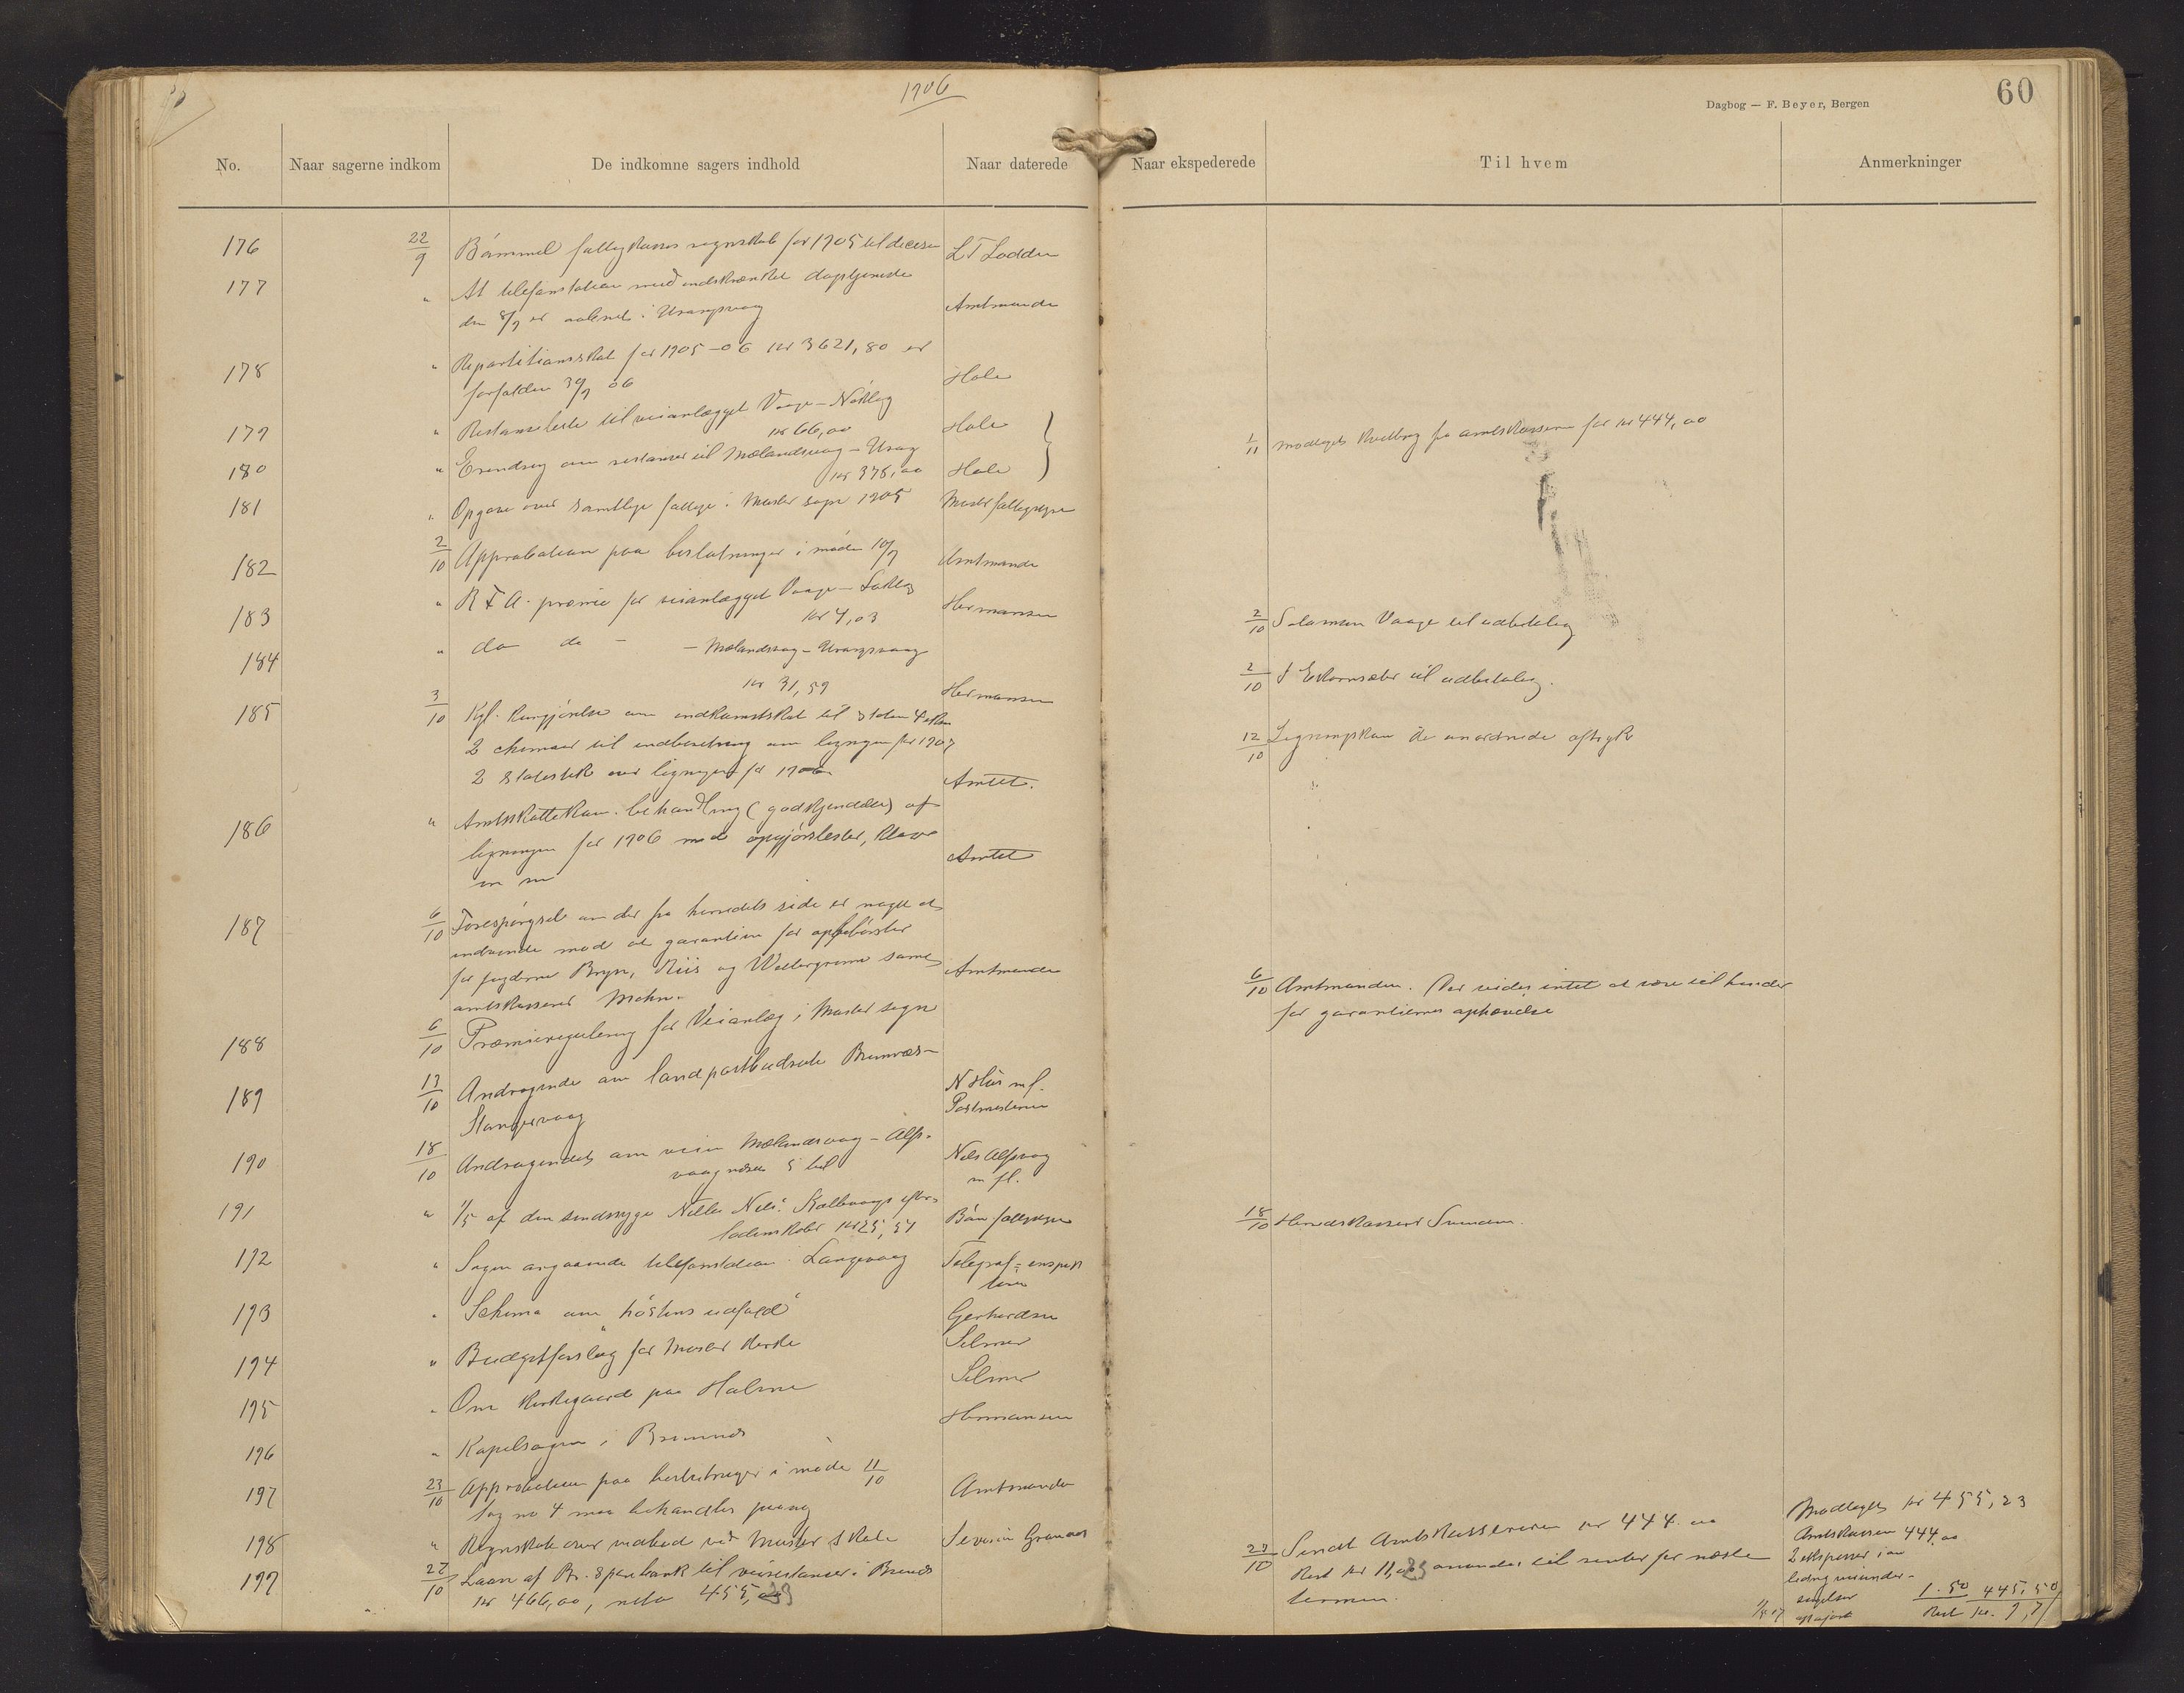 1906
60
Dagbog — F. Beyer, Bergen
No.
Naar sagerne indkom
De indkomne sagers indhold
Naar daterede
Naar ekspederede
Til hvem
Anmerkninger
176 22/9 Bömmel fattigkasses regnskab for 1905 til decision L T Lodden
177 " At telefonstation med indskrænket dagtjeneste
den 8/9 er aabnet i Urangsvaag Amtmanden
178 " Repartitionsskat for 1905-06 kr 3621,80 er
forfalden 30/9 06 Hole
179 " Restanseliste til veianlægget Vaage - Nökling
kr 66,00 Hole
1/11 modtaget kvittring fra amtskasseren for kr 444,00
180 " Erindring om restanser til Mælandsvaag - Urang
kr 378,00 Hole
181 " Opgave over samtlige fattige i Moster sogn 1905 Moster fattigstyre
182 2/10 Approbation paa beslutninger i möde 10/9 Amtmanden
183 " R F A. præmie for veianlægget Vaage -
kr 4,03 Hermansen
2/10 Salamon Vaage til udbetaling
184 " do do - - Mælandsvaag - Urangsvaag
kr 31,59 Hermansen
2/10 til udbetaling.
185 3/10 Kgl. kungjörelse om indkomstskat til staten 4 eks
2 skemaer til indberetning om ligningen for 1907
2 statistik over ligningen for 1906 Amtet.
12/10 Ligningskom de anordnede aftryk
186 " Amtsskattekom. behandling (godkjendelse) af
ligningen for 1906 med opgjörslister, klager
m m Amtet
187 6/10 Forespörgsel om der fra herredets side er noget at
indvende mod at garantien for opebörsler
for fogderne Bryn, Riis og Wettergreen samt
amtskasserer Mohn. Amtmanden
6/10 Amtmanden. Der vides intet at være til hinder
for garantiernes ophævelse
188 6/10 Præmieregulering for Veianlæg i Moster sogn
189 13/10 Andragende om landpostbudrute Bremnes -
Stangervaag N Hus m fl.
Postmesteren
190 18/10 Andragendet om veien Mælandsvaag - Alfs-
vaag Nils Alfsvaag
m fl.
191 " 1/5 af den sindssyge Nille Nils: Kallevaags efter-
ladenskaber kr 25,57 Böm fattigstyre
18/10 Herredskasserer
192 " Sagen angaaende telefonstation i Langevaag Telegraf-inspek
tören
193 " Schema om "höstens udfald" Gerhardsen
194 " Budgetforslag for Moster kirke Selmer
195 " Om kirkegaard paa Holme Selmer
196 " Kapelsagen i Bremnes Hermansen
197 23/10 Approbation paa beslutninger i möde 11/10 Amtmanden
Sag no 4 maa behandles paany
198 " Regnskab over vedbud ved Moster skole Severin Grannes
199 27/10 Laan af Br. Sparebank til veirestanser i Bremnes
kr 466,00, netto 455,23
29/10 Sendt Amtskassereren kr 444.00
Rest kr 11,23 anvendes til renter for næste
termin.
Modtaget kr 455,23
Amtskassen 444.00
2 ekspresser i an
ledning
1.50 445,50
Rest kr. 9,73